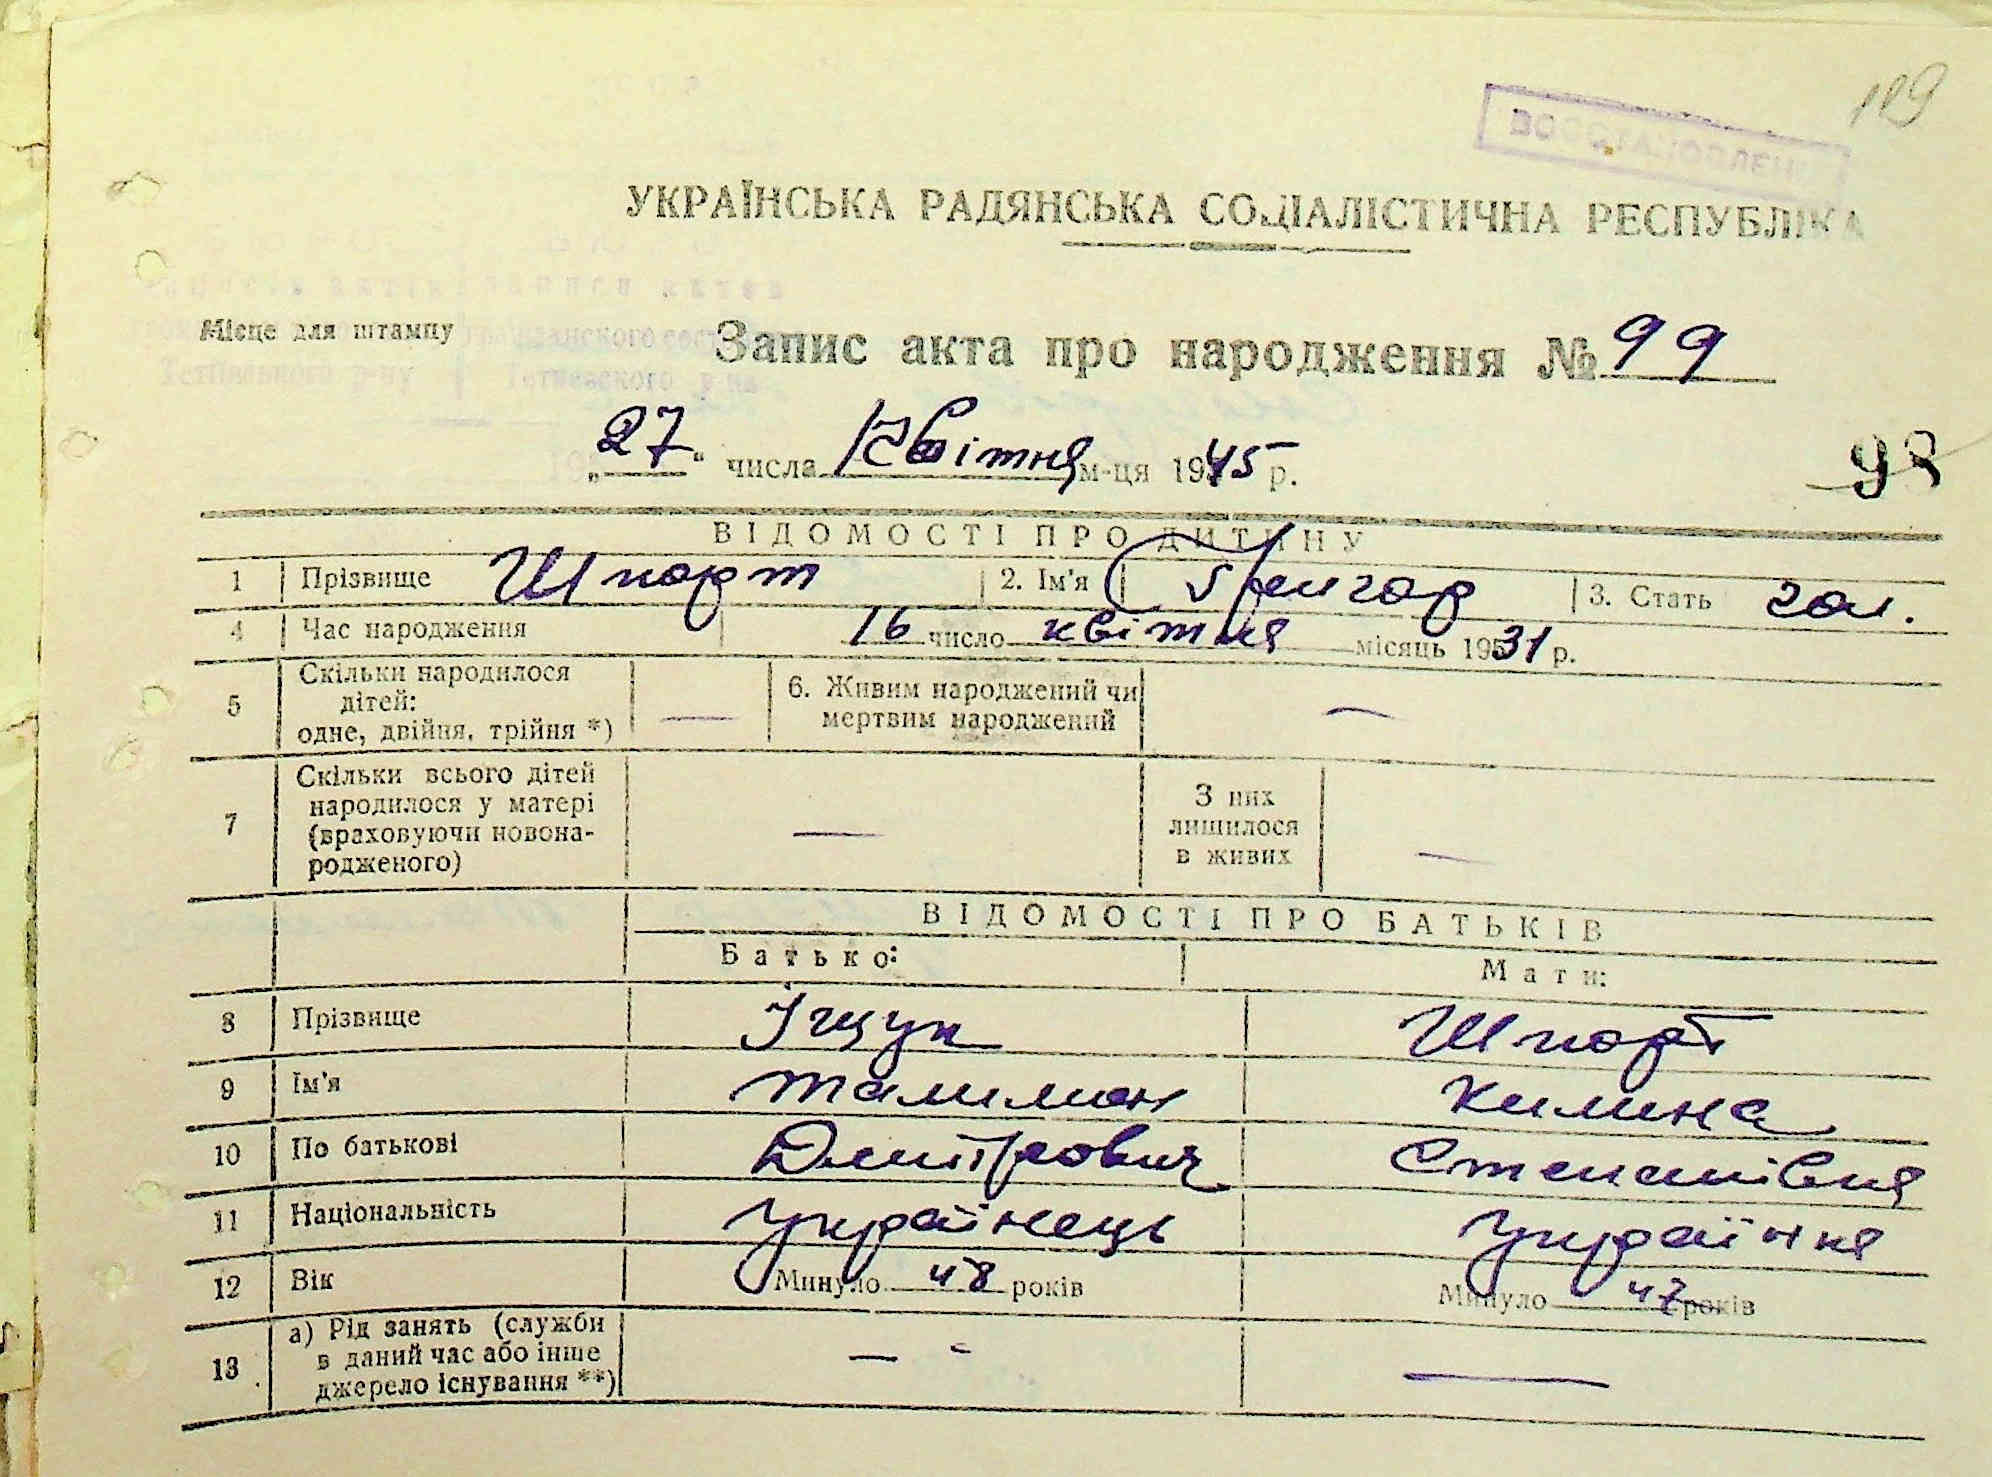 119
ВОССТАНОВЛЕН
УКРАЇНСЬКА РАДЯНСЬКА СОЦІАЛІСТИЧНА РЕСПУБЛІКА
Місце для штампу
Запис акта про народження № 99
„27“ числа Квітня м-ця 1945 р.
98
ВІДОМОСТІ ПРО ДИТИНУ
1 Прізвище Шпорт 2. Ім'я Григор 3. Стать чол.
4 Час народження 16 число квітня місяць 1931 р.
5 Скільки народилося дітей: одне, двійня, трійня *) — 6. Живим народжений чи мертвим народжений —
7 Скільки всього дітей народилося у матері (враховуючи новонародженого) — З них лишилося в живих —
ВІДОМОСТІ ПРО БАТЬКІВ
Батько: Мати:
8 Прізвище Іщук Шпорт
9 Ім'я Талимон Килина
10 По батькові Дмитрович Степанівня
11 Національність Українець Україння
12 Вік Минуло 48 років Минуло 47 років
13 а) Рід занять (служби в даний час або інше джерело існування **) — - —